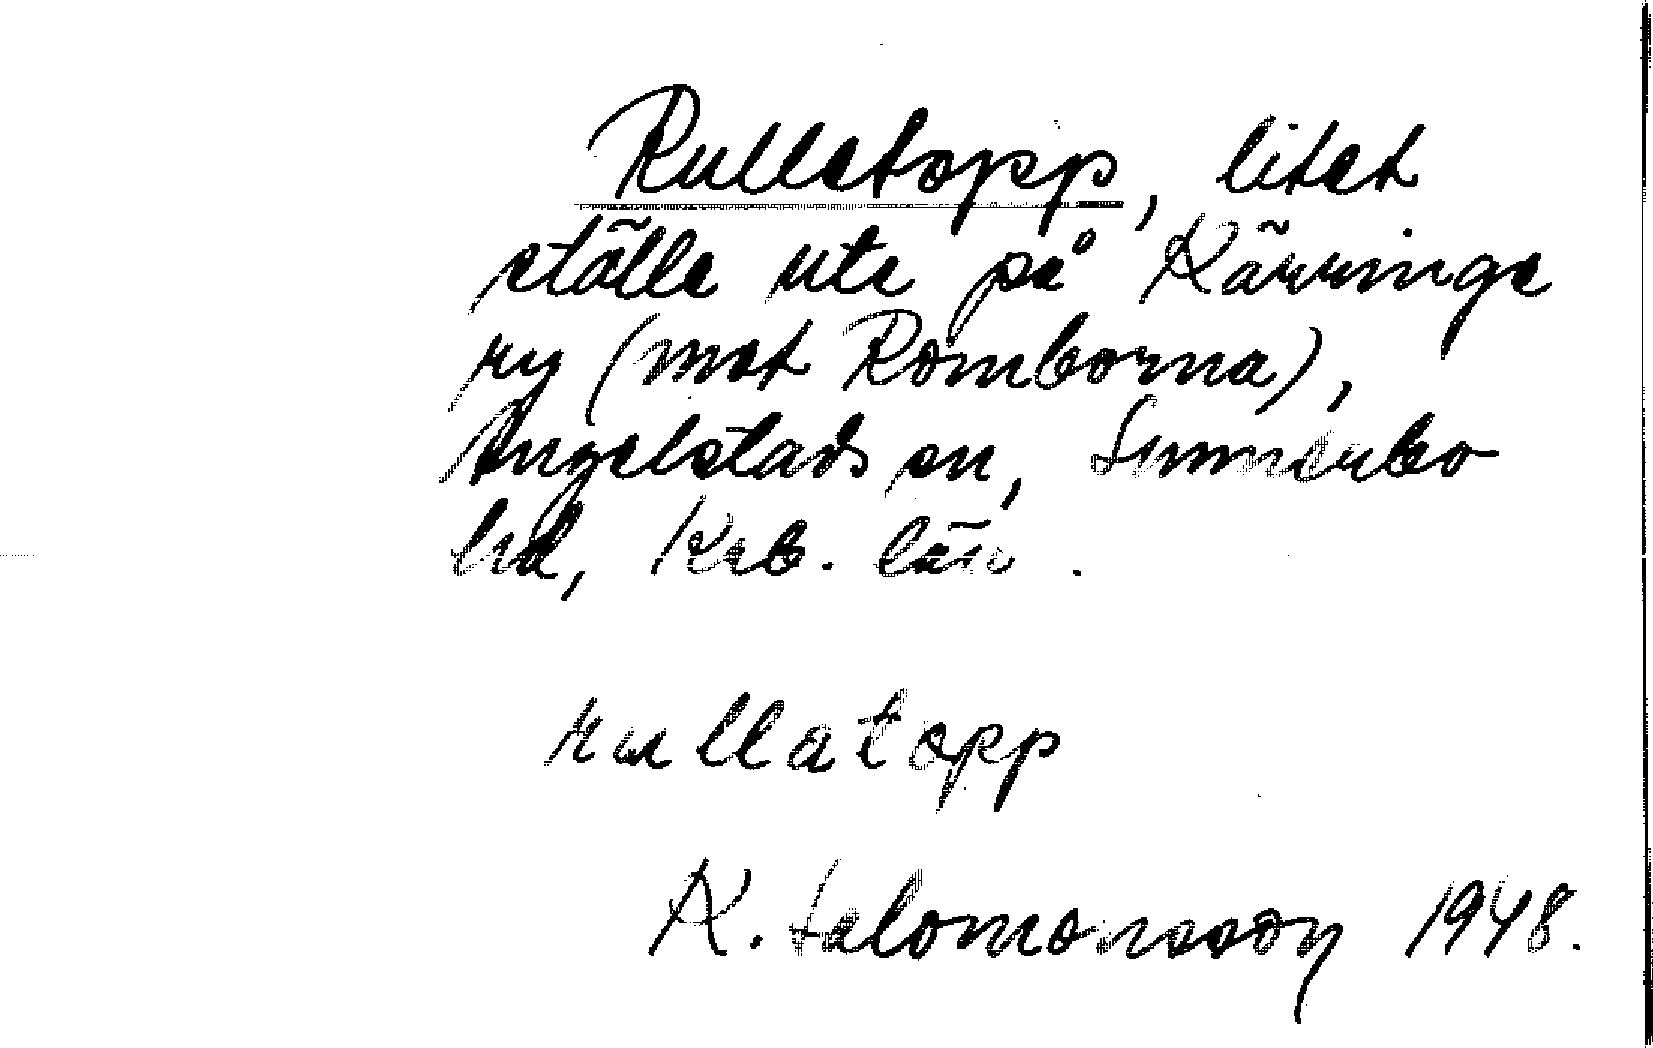 Rullatopp, litet
ställe ute på Kärringa
ry (mot Romborna),
Angelstads sn, Sunnerbo
hd, Krb. län.
rullatopp
K. Salomonsson 1948.